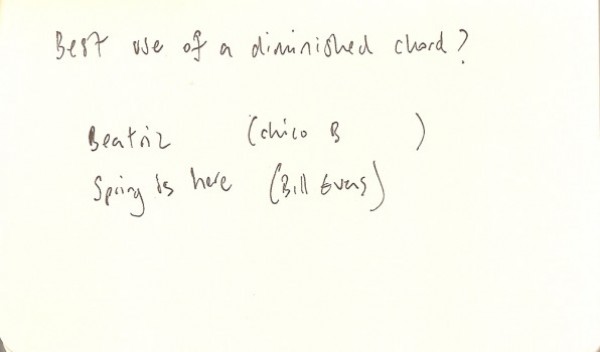 Best use of a diminished chord?
Beatriz (chico B )
Spring is here (Bill Evans)